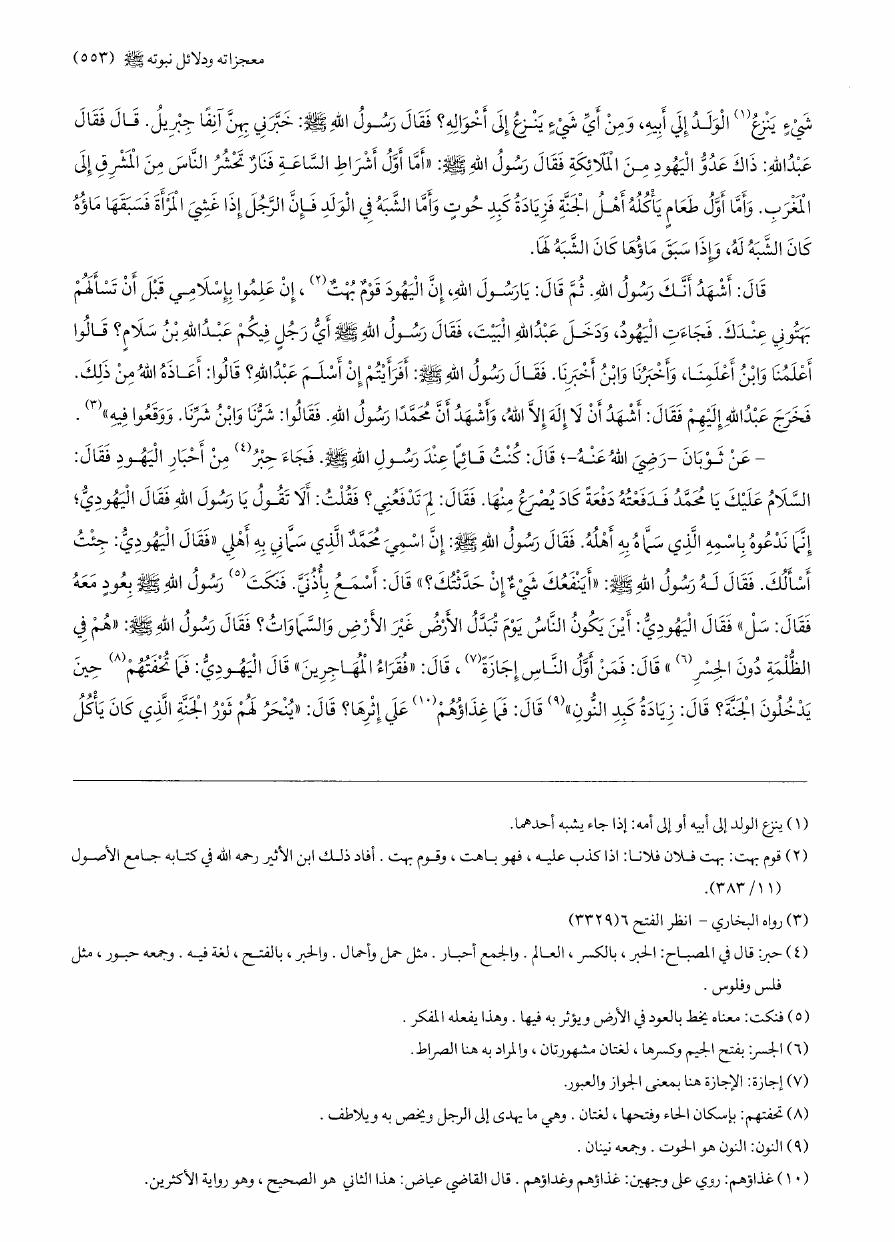 معجزاته ودلائل نبوته ﷺ (٥٥٣)
شَيْءٍ يَنْزِعُ(١) الْوَلَدُ إِلَى أَبِيهِ، وَمِنْ أَيِّ شَيْءٍ يَنْزِعُ إِلَى أَخْوَالِهِ؟ فَقَالَ رَسُولُ اللهِ ﷺ: خَبَّرَنِي بِهِنَّ آنِفًا جِبْرِيلُ. قَالَ فَقَالَ
عَبْدُاللهِ: ذَاكَ عَدُوُّ الْيَهُودِ مِنَ الْمَلَائِكَةِ فَقَالَ رَسُولُ اللهِ ﷺ: «أَمَّا أَوَّلُ أَشْرَاطِ السَّاعَةِ فَنَارٌ تَحْشُرُ النَّاسَ مِنَ الْمَشْرِقِ إِلَى
الْمَغْرِبِ. وَأَمَّا أَوَّلُ طَعَامٍ يَأْكُلُهُ أَهْلُ الْجَنَّةِ فَزِيَادَةُ كَبِدِ حُوتٍ وَأَمَّا الشَّبَهُ فِي الْوَلَدِ فَإِنَّ الرَّجُلَ إِذَا غَشِيَ الْمَرْأَةَ فَسَبَقَهَا مَاؤُهُ
كَانَ الشَّبَهُ لَهُ، وَإِذَا سَبَقَ مَاؤُهَا كَانَ الشَّبَهُ لَهَا.
قَالَ: أَشْهَدُ أَنَّكَ رَسُولُ اللهِ. ثُمَّ قَالَ: يَارَسُولَ اللهِ، إِنَّ الْيَهُودَ قَوْمٌ بُهْتٌ(٢)، إِنْ عَلِمُوا بِإِسْلَامِي قَبْلَ أَنْ تَسْأَلَهُمْ
بَهَتُونِي عِنْدَكَ. فَجَاءَتِ الْيَهُودُ، وَدَخَلَ عَبْدُاللهِ الْبَيْتَ، فَقَالَ رَسُولُ اللهِ ﷺ أَيُّ رَجُلٍ فِيكُمْ عَبْدُاللهِ بْنُ سَلَامٍ؟ قَالُوا
أَعْلَمُنَا وَابْنُ أَعْلَمِنَا، وَأَخْبَرُنَا وَابْنُ أَخْبَرِنَا. فَقَالَ رَسُولُ اللهِ ﷺ: أَفَرَأَيْتُمْ إِنْ أَسْلَمَ عَبْدُاللهِ؟ قَالُوا: أَعَاذَهُ اللهُ مِنْ ذَلِكَ.
فَخَرَجَ عَبْدُاللهِ إِلَيْهِمْ فَقَالَ: أَشْهَدُ أَنْ لَا إِلَهَ إِلاَّ اللهُ، وَأَشْهَدُ أَنَّ مُحَمَّدًا رَسُولُ اللهِ. فَقَالُوا: شَرُّنَا وَابْنُ شَرِّنَا. وَوَقَعُوا فِيهِ»(٣).
– عَنْ ثَوْبَانَ -رَضِيَ اللهُ عَنْهُ-؛ قَالَ: كُنْتُ قَائِمًا عِنْدَ رَسُولِ اللهِ ﷺ. فَجَاءَ حِبْرٌ(٤) مِنْ أَحْبَارِ الْيَهُودِ فَقَالَ:
السَّلَامُ عَلَيْكَ يَا مُحَمَّدُ فَدَفَعْتُهُ دَفْعَةً كَادَ يُصْرَعُ مِنْهَا. فَقَالَ: لِمَ تَدْفَعُنِي؟ فَقُلْتُ: أَلَا تَقُولُ يَا رَسُولَ اللهِ فَقَالَ الْيَهُودِيُّ؛
إِنَّمَا نَدْعُوهُ بِاسْمِهِ الَّذِي سَمَّاهُ بِهِ أَهْلُهُ. فَقَالَ رَسُولُ اللهِ ﷺ: إِنَّ اسْمِيَ مُحَمَّدٌ الَّذِي سَمَّانِي بِهِ أَهْلِي «فَقَالَ الْيَهُودِيُّ: جِئْتُ
أَسْأَلُكَ. فَقَالَ لَهُ رَسُولُ اللهِ ﷺ: «أَيَنْفَعُكَ شَيْءٌ إِنْ حَدَّثْتُكَ؟» قَالَ: أَسْمَعُ بِأُذُنَيَّ. فَنَكَتَ(٥) رَسُولُ اللهِ ﷺ بِعُودٍ مَعَهُ
فَقَالَ: سَلْ» فَقَالَ الْيَهُودِيُّ: أَيْنَ يَكُونُ النَّاسُ يَوْمَ تُبَدَّلُ الأَرْضُ غَيْرَ الأَرْضِ وَالسَّمَاوَاتُ؟ فَقَالَ رَسُولُ اللهِ ﷺ: «هُمْ فِي
الظُّلْمَةِ دُونَ الْجِسْرِ(٦)» قَالَ: فَمَنْ أَوَّلُ النَّاسِ إِجَازَةً(٧)، قَالَ: «فُقَرَاءُ الْمُهَاجِرِينَ» قَالَ الْيَهُودِيُّ: فَمَا تُحْفَتُهُمْ(٨) حِينَ
يَدْخُلُونَ الْجَنَّةَ؟ قَالَ: زِيَادَةُ كَبِدِ النُّونِ»(٩) قَالَ: فَمَا غِذَاؤُهُمْ(١٠) عَلَى إِثْرِهَا؟ قَالَ: «يُنْحَرُ لَهُمْ ثَوْرُ الْجَنَّةِ الَّذِي كَانَ يَأْكُلُ
(١) ينزع الولد إلى أبيه أو إلى أمه: إذا جاء يشبه أحدهما.
(٢) قوم بهت: بهت فلان فلانا: اذا كذب عليه، فهو باهت، وقوم بهت. أفاد ذلك ابن الأثير رحمه الله في كتابه جامع الأصول
(١١/ ٣٨٣).
(٣) رواه البخاري – انظر الفتح ٦(٣٣٢٩)
(٤) حبر: قال في المصباح: الحبر، بالكسر، العالم. والجمع أحبار. مثل حمل وأحمال. والحبر، بالفتح، لغة فيه. وجمعه حبور، مثل
فلس وفلوس.
(٥) فنكت: معناه يخط بالعود في الأرض ويؤثر به فيها. وهذا يفعله المفكر.
(٦) الجسر: بفتح الجيم وكسرها، لغتان مشهورتان، والمراد به هنا الصراط.
(٧) إجازة: الإجازة هنا بمعنى الجواز والعبور.
(٨) تحفتهم: بإسكان الحاء وفتحها، لغتان. وهي ما يهدى إلى الرجل ويخص به ويلاطف.
(٩) النون: النون هو الحوت. وجمعه نينان.
(١٠) غذاؤهم: روي على وجهين: غذاؤهم وغداؤهم. قال القاضي عياض: هذا الثاني هو الصحيح، وهو رواية الأكثرين.